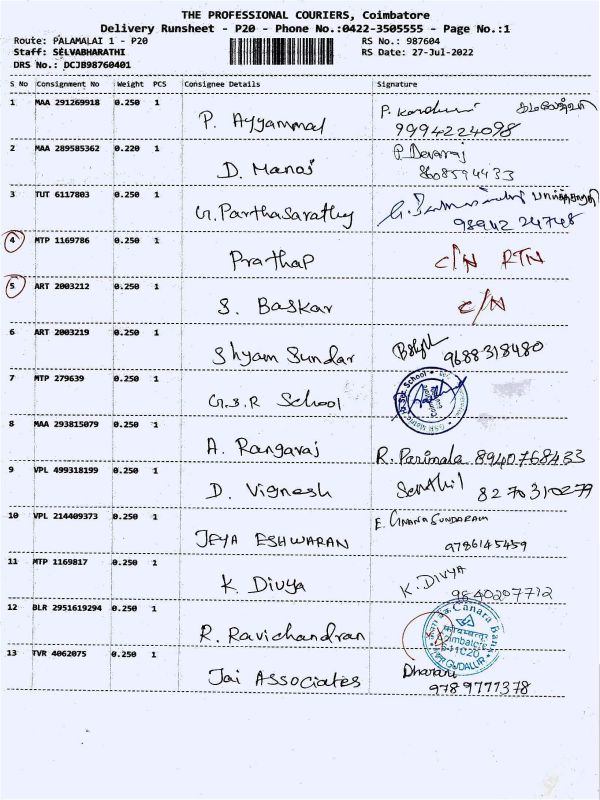 THE PROFESSIONAL COURIERS, Coimbatore
Delivery Runsheet - P20 - Phone No.:0422-3505555 - Page No.:1
Route: PALAMALAI 1 - P20 RS No.: 987604
Staff: SELVABHARATHI RS Date: 27-Jul-2022
DRS No.: DCJB98760401
S No Consignment No Weight PCS Consignee Details Signature
1 MAA 291269918 0.250 1 P. Ayyammal
9994224098
2 MAA 289585362 0.220 1 D. Manoj P. Devaraj
8608594433
3 TUT 6117803 0.250 1 G. Parthasarathy
98942 24748
4 MTP 1169786 0.250 1 Prathap C/N RTN
5 ART 2003212 0.250 1 S. Baskar C/N
6 ART 2003219 0.250 1 Shyam Sundar 9688318480
7 MTP 279639 0.250 1 G.S.R School
8 MAA 293815079 0.250 1 A. Rangaraj R. Parimala 8940768433
9 VPL 499318199 0.250 1 D. Vignesh Senthil 8270310279
10 VPL 214409373 0.250 1 JEYA ESHWARAN E. GNANASUNDARAM
9786145459
11 MTP 1169817 0.250 1 K. Divya K. DIVYA
9840207712
12 BLR 2951619294 0.250 1 R. Ravichandran Canara Bank
13 TVR 4062075 0.250 1 Jai ASSOCIATES Dharani
9789777378